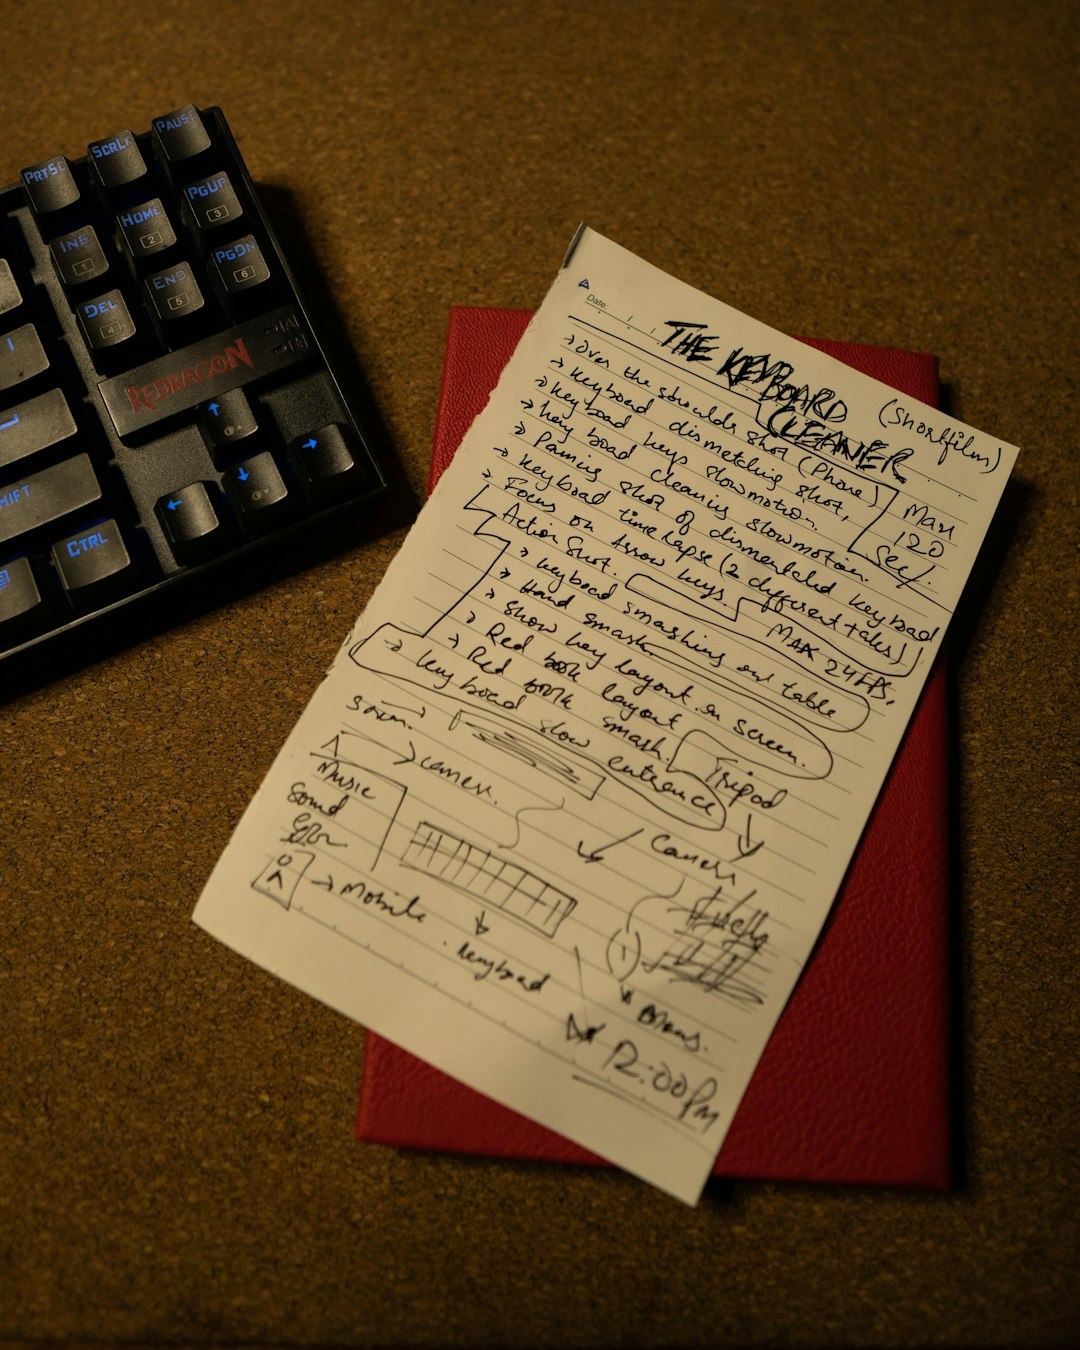 PRTSC
SCRLK
PAUSE
INS
1
HOME
2
PGUP
3
DEL
4
END
5
PGDN
6
REDRAGON
SHIFT
CTRL
Date:
THE KEYBOARD
CLEANER
(Shortfilm)
→ Over the shoulds shot (Phone)
→ Keyboad dismetching shot,
→ Keyboad keys slowmotion.
→ key boad cleanins slowmotion.
→ Paning shot of dismentcled keyboad
→ Keyboad timelapse (2 different taks)
→ Focus on Arrow keys.
Max
120
Sec/.
MAX 24FPS,
Action Shot.
→ keyboad smashing our table
→ Hand smash
→ Show key layout on screen.
→ Red book layout
→ Red book smash.
→ keyboad slow entrence
Tripod
→ camera.
Music
Sound
→ Mobile
keyboad
1
12:00 Pm